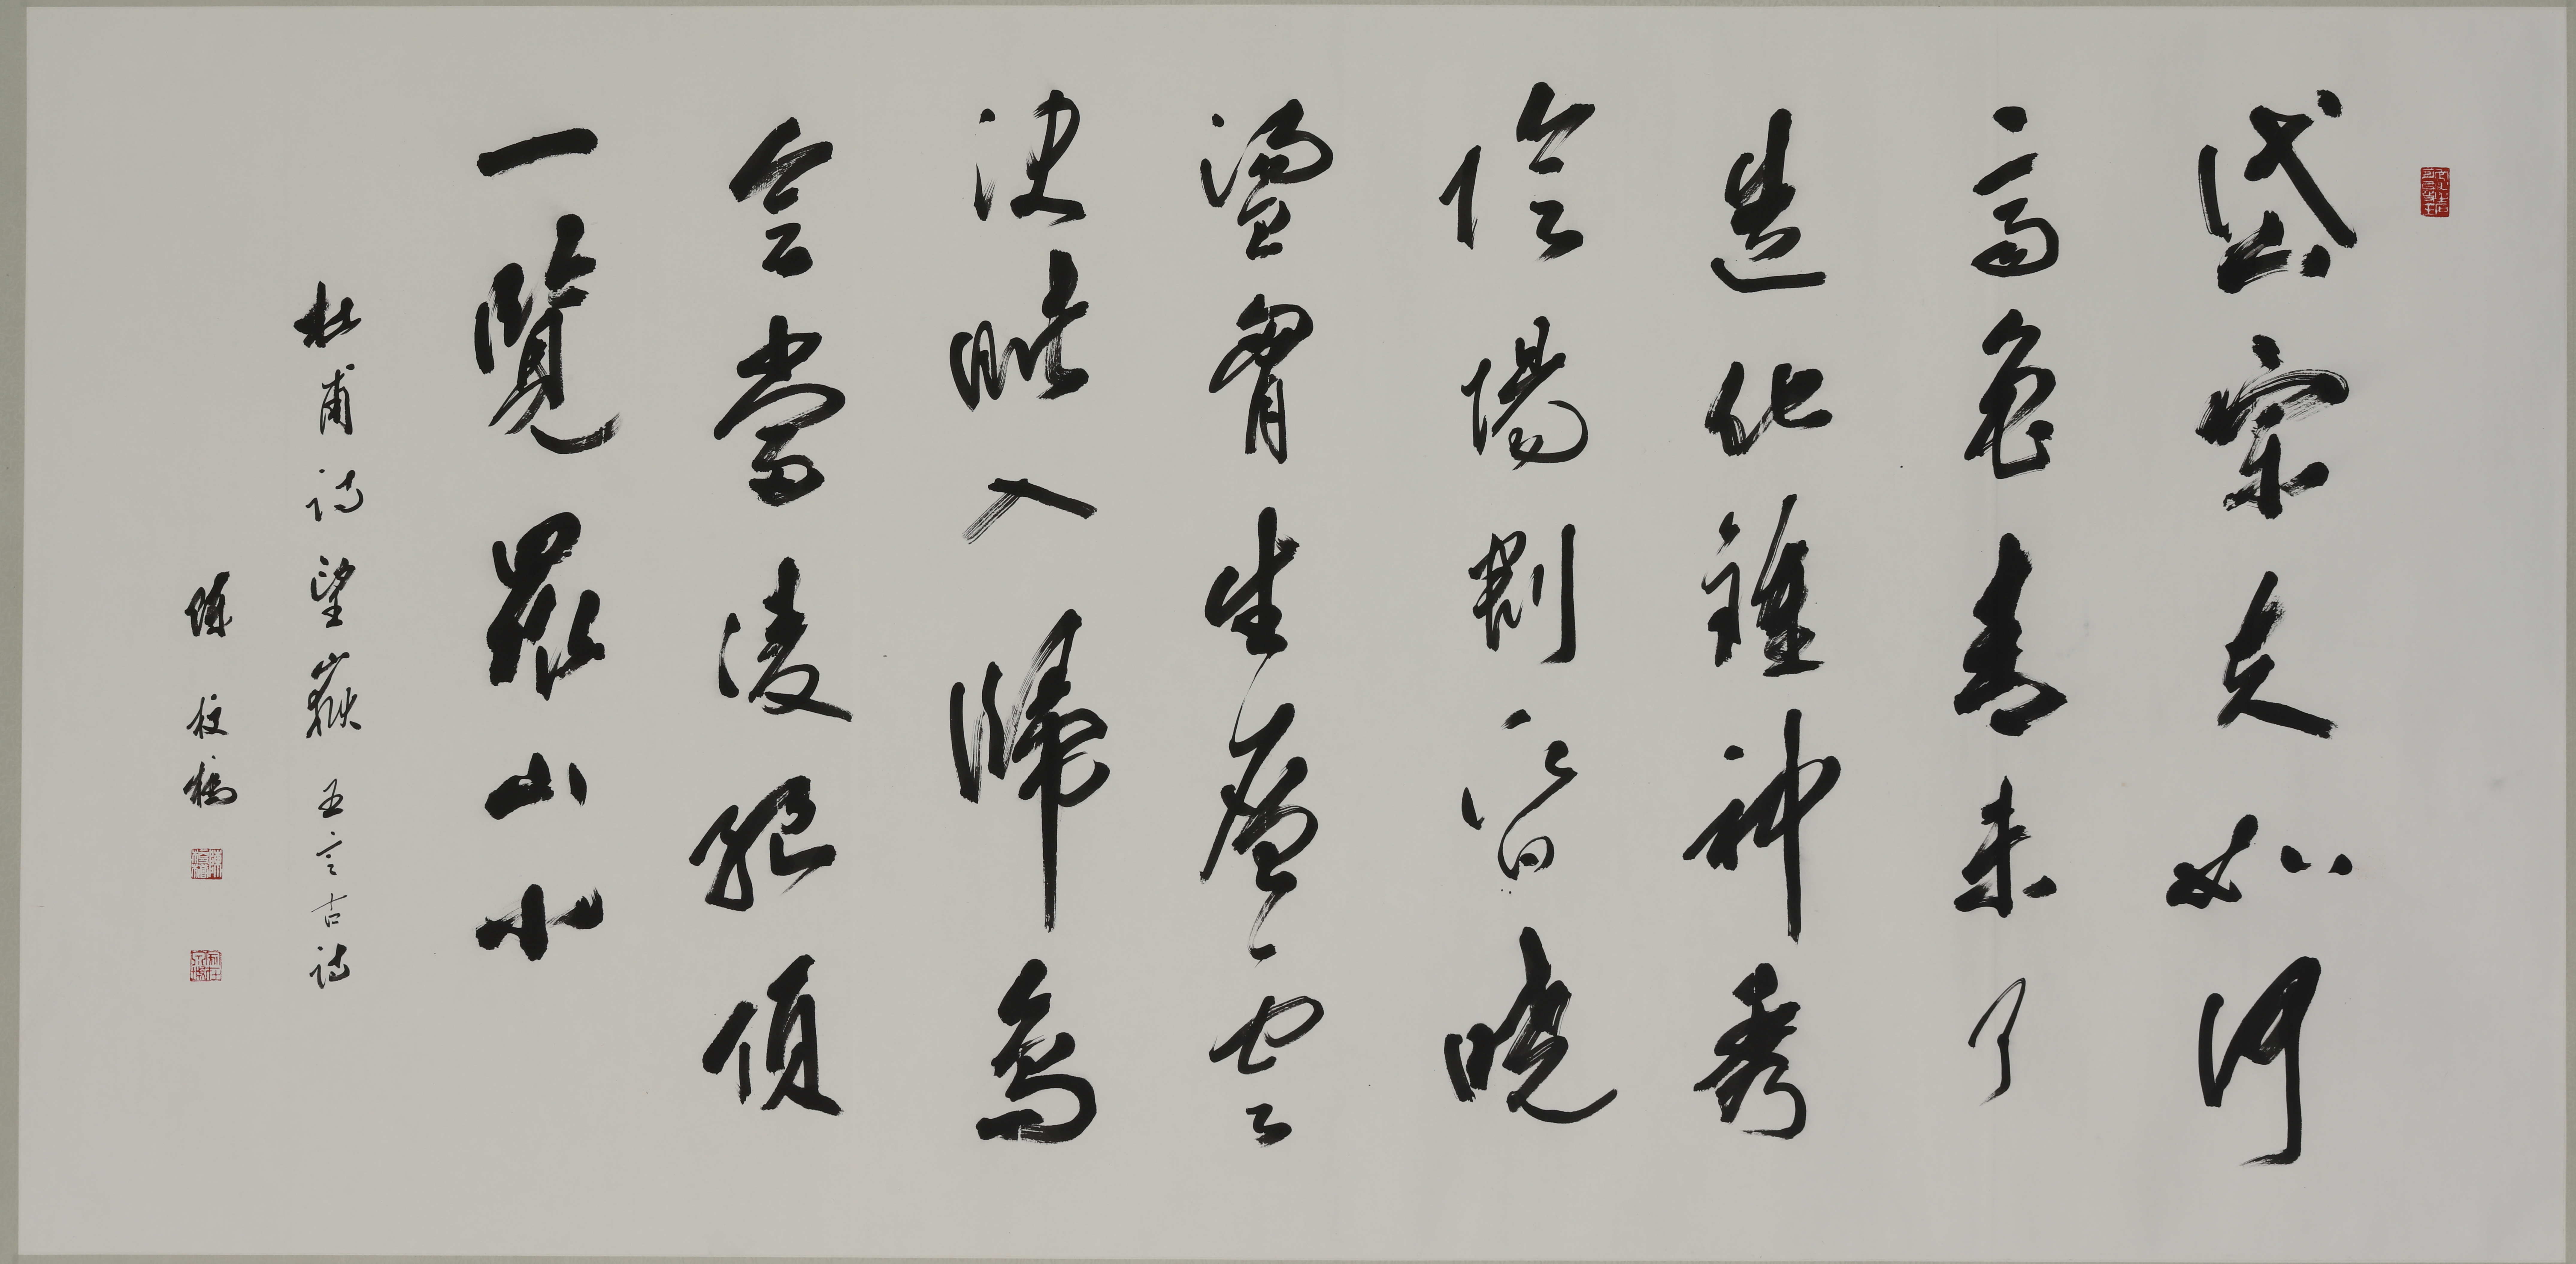 岱宗夫如何
齊魯青未了
造化鍾神秀
陰陽割昏曉
盪胷生層雲
決眦入歸鳥
會當凌絕頂
一覽眾山小
杜甫詩望嶽 五言古詩
陳